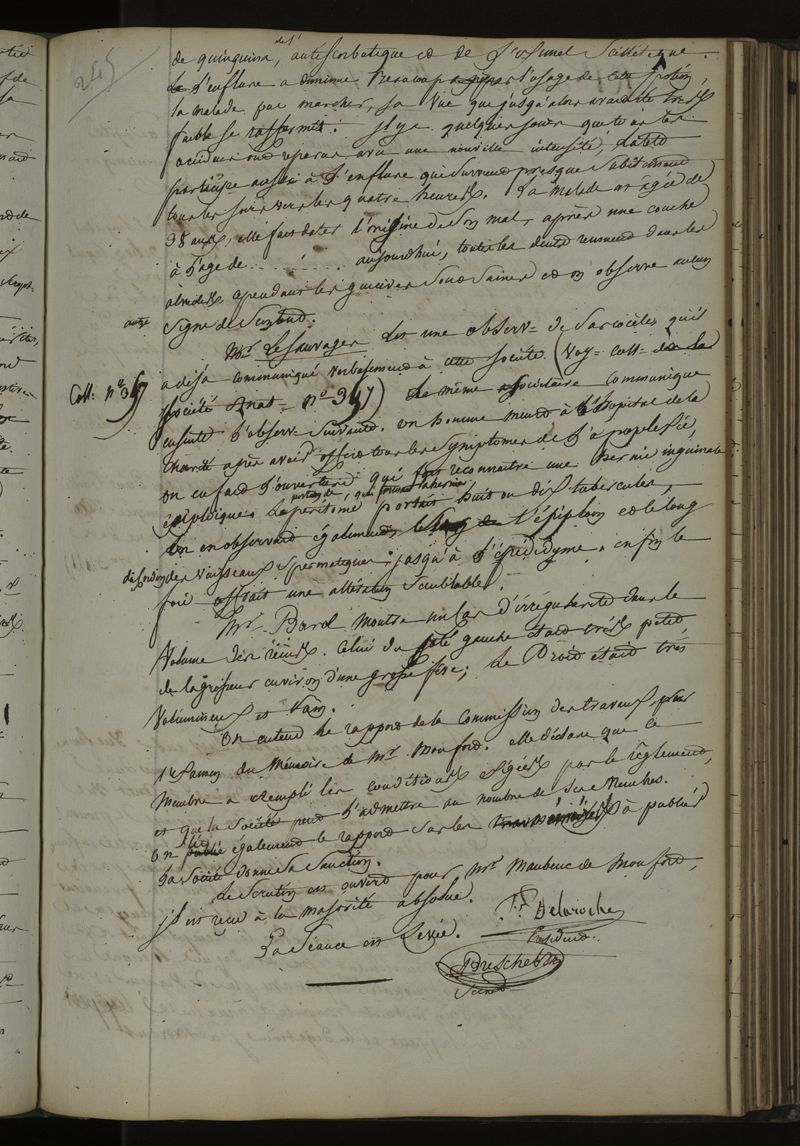 245
de quinquina, de l' antiscorbutique et de l'oximel scillitique.
L'enflure a diminué beaucoup par l'usage de cette potion,
la malade peut marcher, sa vue que jusqu'alors avait été très
faible se raffermit. Il y a quelques jours que tous les
accidens ont reparu avec une nouvelle intensité,
participe aussi à l'enflure qui survient presque subitement
tous les soirs vers les quatre heures. La malade est agée de
38 ans, elle fait dater l'origine de son mal, après une couche
à l'age de . . . . . . . aujourdhui, toutes les dents remuent dans les
alvéoles cependant les gencives sont saines et on n'observe aucun
signe de scorbut.
Mr. Lesauvage lit une observ= de sarcocèles qu'il
a déja communiqué verbalement à cette société (voy= coll= de la
Coll: n° 347
société Anat= n° 347) Le même sociétaire communique
ensuite l'observ= suivante. un homme meurt à l'hopital de la
charité après avoir offert tous les symptomes de l'apoplexie,
on en fait l'ouverture qui fait reconnaître une hernie inguinale
épiploique. Le péritoine portait huit ou dix tubercules,
on en observait également l'épiploon et le long
du cordon des vaisseaux spermatiques jusqu'à l'épididyme. enfin le
foie offrait une altération semblable.
Mr. Baról montre un cas d'irrégularité dans le
volume des reins. Celui du côté gauche était très petit
de la grosseur environ d'une grosse fève; le droit était très
volumineux et sain.
On entend le rapport de la commission des travaux, pour
l'examen du mémoire de Mr. Monford. elle déclare que ce
membre a rempli les conditions exigées par le règlement,
et que la société peut l'admettre au nombre de ses membres.
on lit également le rapport sur les à publier
la société donne sa sanction.
Le scrutin est ouvert pour Mr. Maubeuc de Monford,
il est reçu à la majorité absolue.
La séance est levée.
Delaroche
Président.
Breschet
Secret.